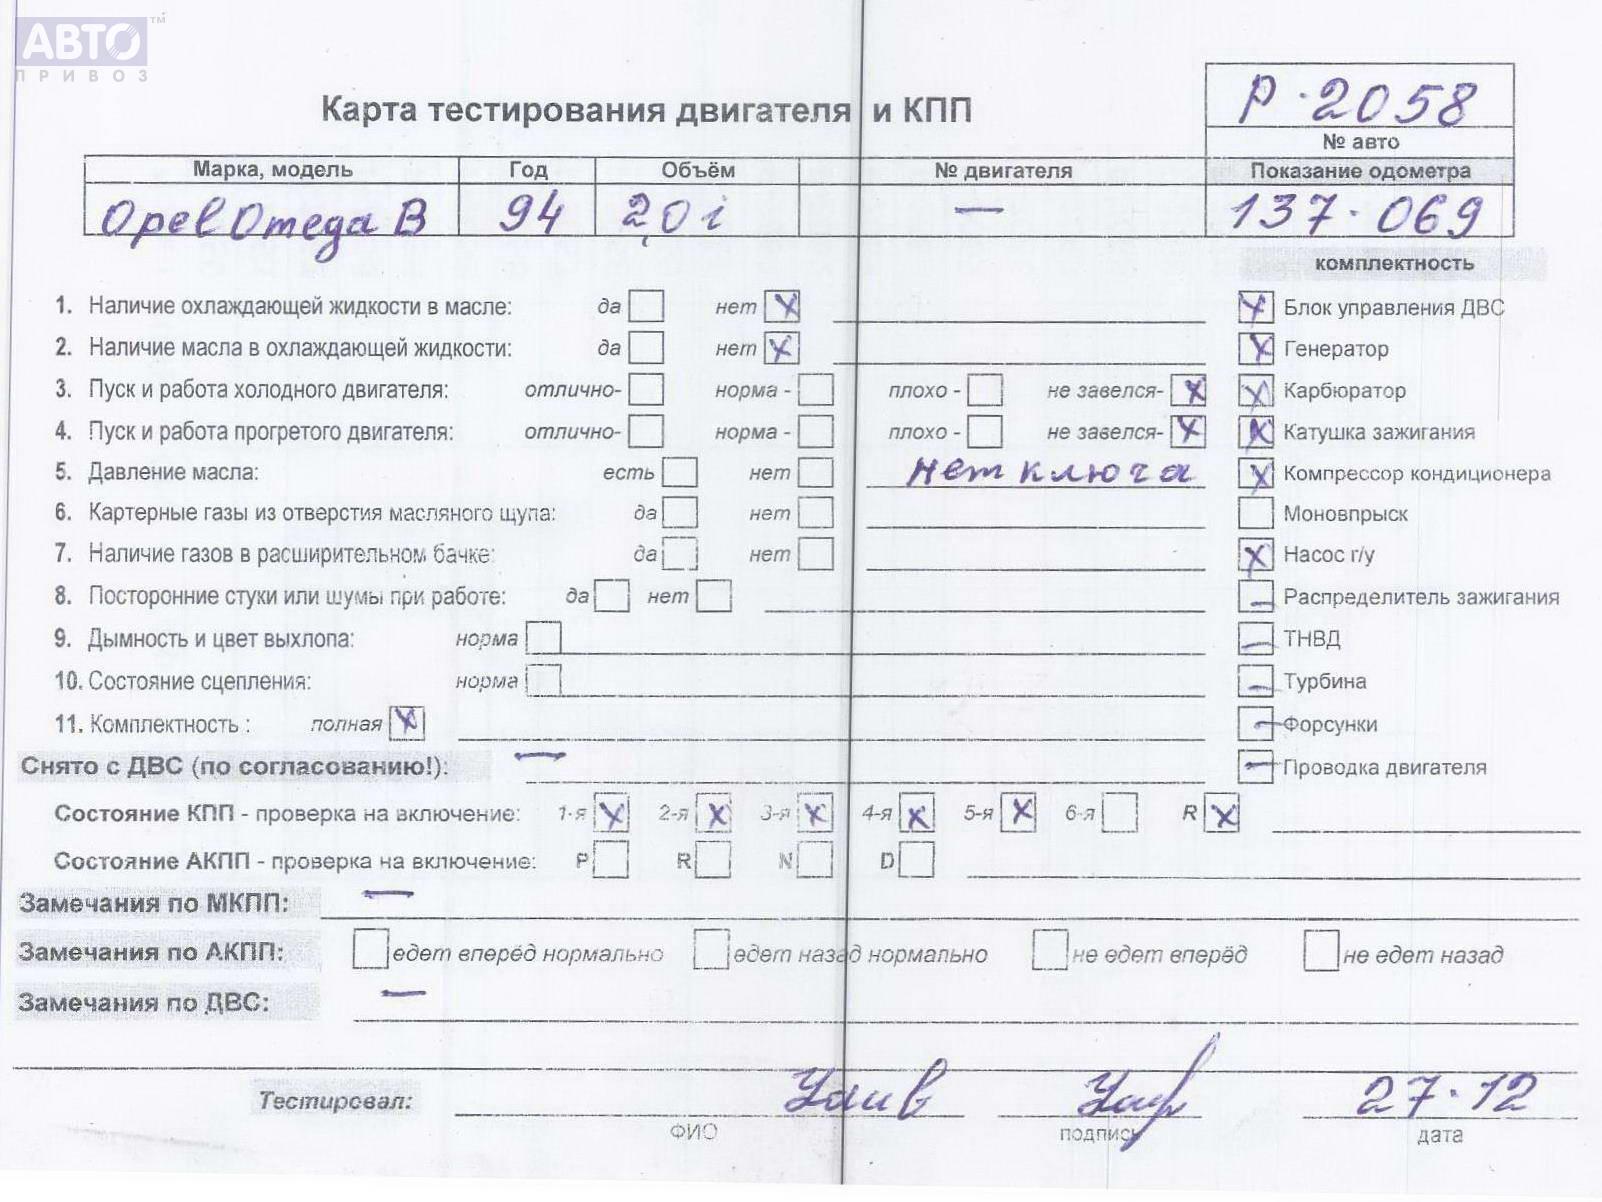 АВТО ™
ПРИВОЗ
Р·2058
Карта тестирования двигателя и КПП
№ авто
Марка, модель Год Объём № двигателя Показание одометра
Opel Omega B 94 2,0 i — 137·069
комплектность
1. Наличие охлаждающей жидкости в масле: да нет X Блок управления ДВС X
2. Наличие масла в охлаждающей жидкости: да нет X Генератор X
3. Пуск и работа холодного двигателя: отлично- норма - плохо - не завелся- X Карбюратор X
4. Пуск и работа прогретого двигателя: отлично- норма - плохо - не завелся- X Катушка зажигания X
5. Давление масла: есть нет нет ключа X Компрессор кондиционера
6. Картерные газы из отверстия масляного щупа: да нет Моновпрыск
7. Наличие газов в расширительном бачке: да нет X Насос г/у
8. Посторонние стуки или шумы при работе: да нет — Распределитель зажигания
9. Дымность и цвет выхлопа: норма — ТНВД
10. Состояние сцепления: норма — Турбина
11. Комплектность : полная X — Форсунки
Снято с ДВС (по согласованию!): — — Проводка двигателя
Состояние КПП - проверка на включение: 1-я X 2-я X 3-я X 4-я X 5-я X 6-я R X
Состояние АКПП - проверка на включение: P R N D
Замечания по МКПП: —
Замечания по АКПП: едет вперёд нормально едет назад нормально не едет вперёд не едет назад
Замечания по ДВС: —
Тестировал: 27·12
ФИО подпись дата